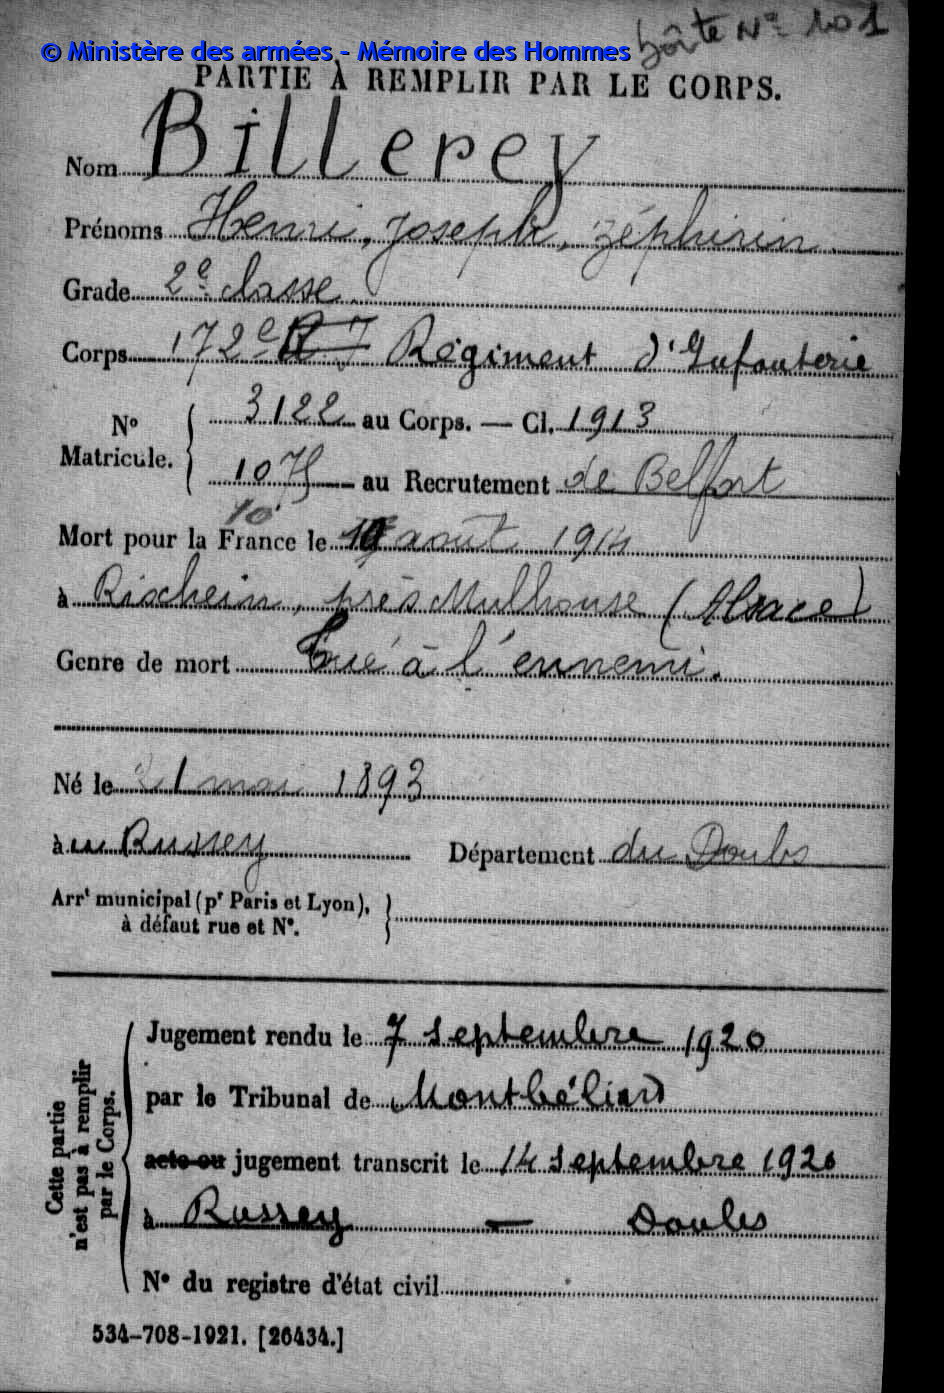 boîte N° 101
© Ministère des armées - Mémoire des Hommes
PARTIE À REMPLIR PAR LE CORPS.
Nom Billerey
Prénoms Henri, Joseph, Zéphirin.
Grade 2e classe.
Corps 172e R.I Régiment d'Infanterie
N° Matricule. { 3122 au Corps. — Cl. 1913
1075 au Recrutement de Belfort
10
Mort pour la France le août 1914
à Rixheim, près Mulhouse (Alsace)
Genre de mort Tué à l'ennemi.
Né le 21 mai 1893
à Russey Département du Doubs
Arrt municipal (pr Paris et Lyon), }
à défaut rue et N°.
Cette partie
n'est pas à remplir
par le Corps.
Jugement rendu le 7 septembre 1920
par le Tribunal de Montbéliard
acte ou jugement transcrit le 14 septembre 1920
à Russey — Doubs
N° du registre d'état civil
534-708-1921. [26434.]